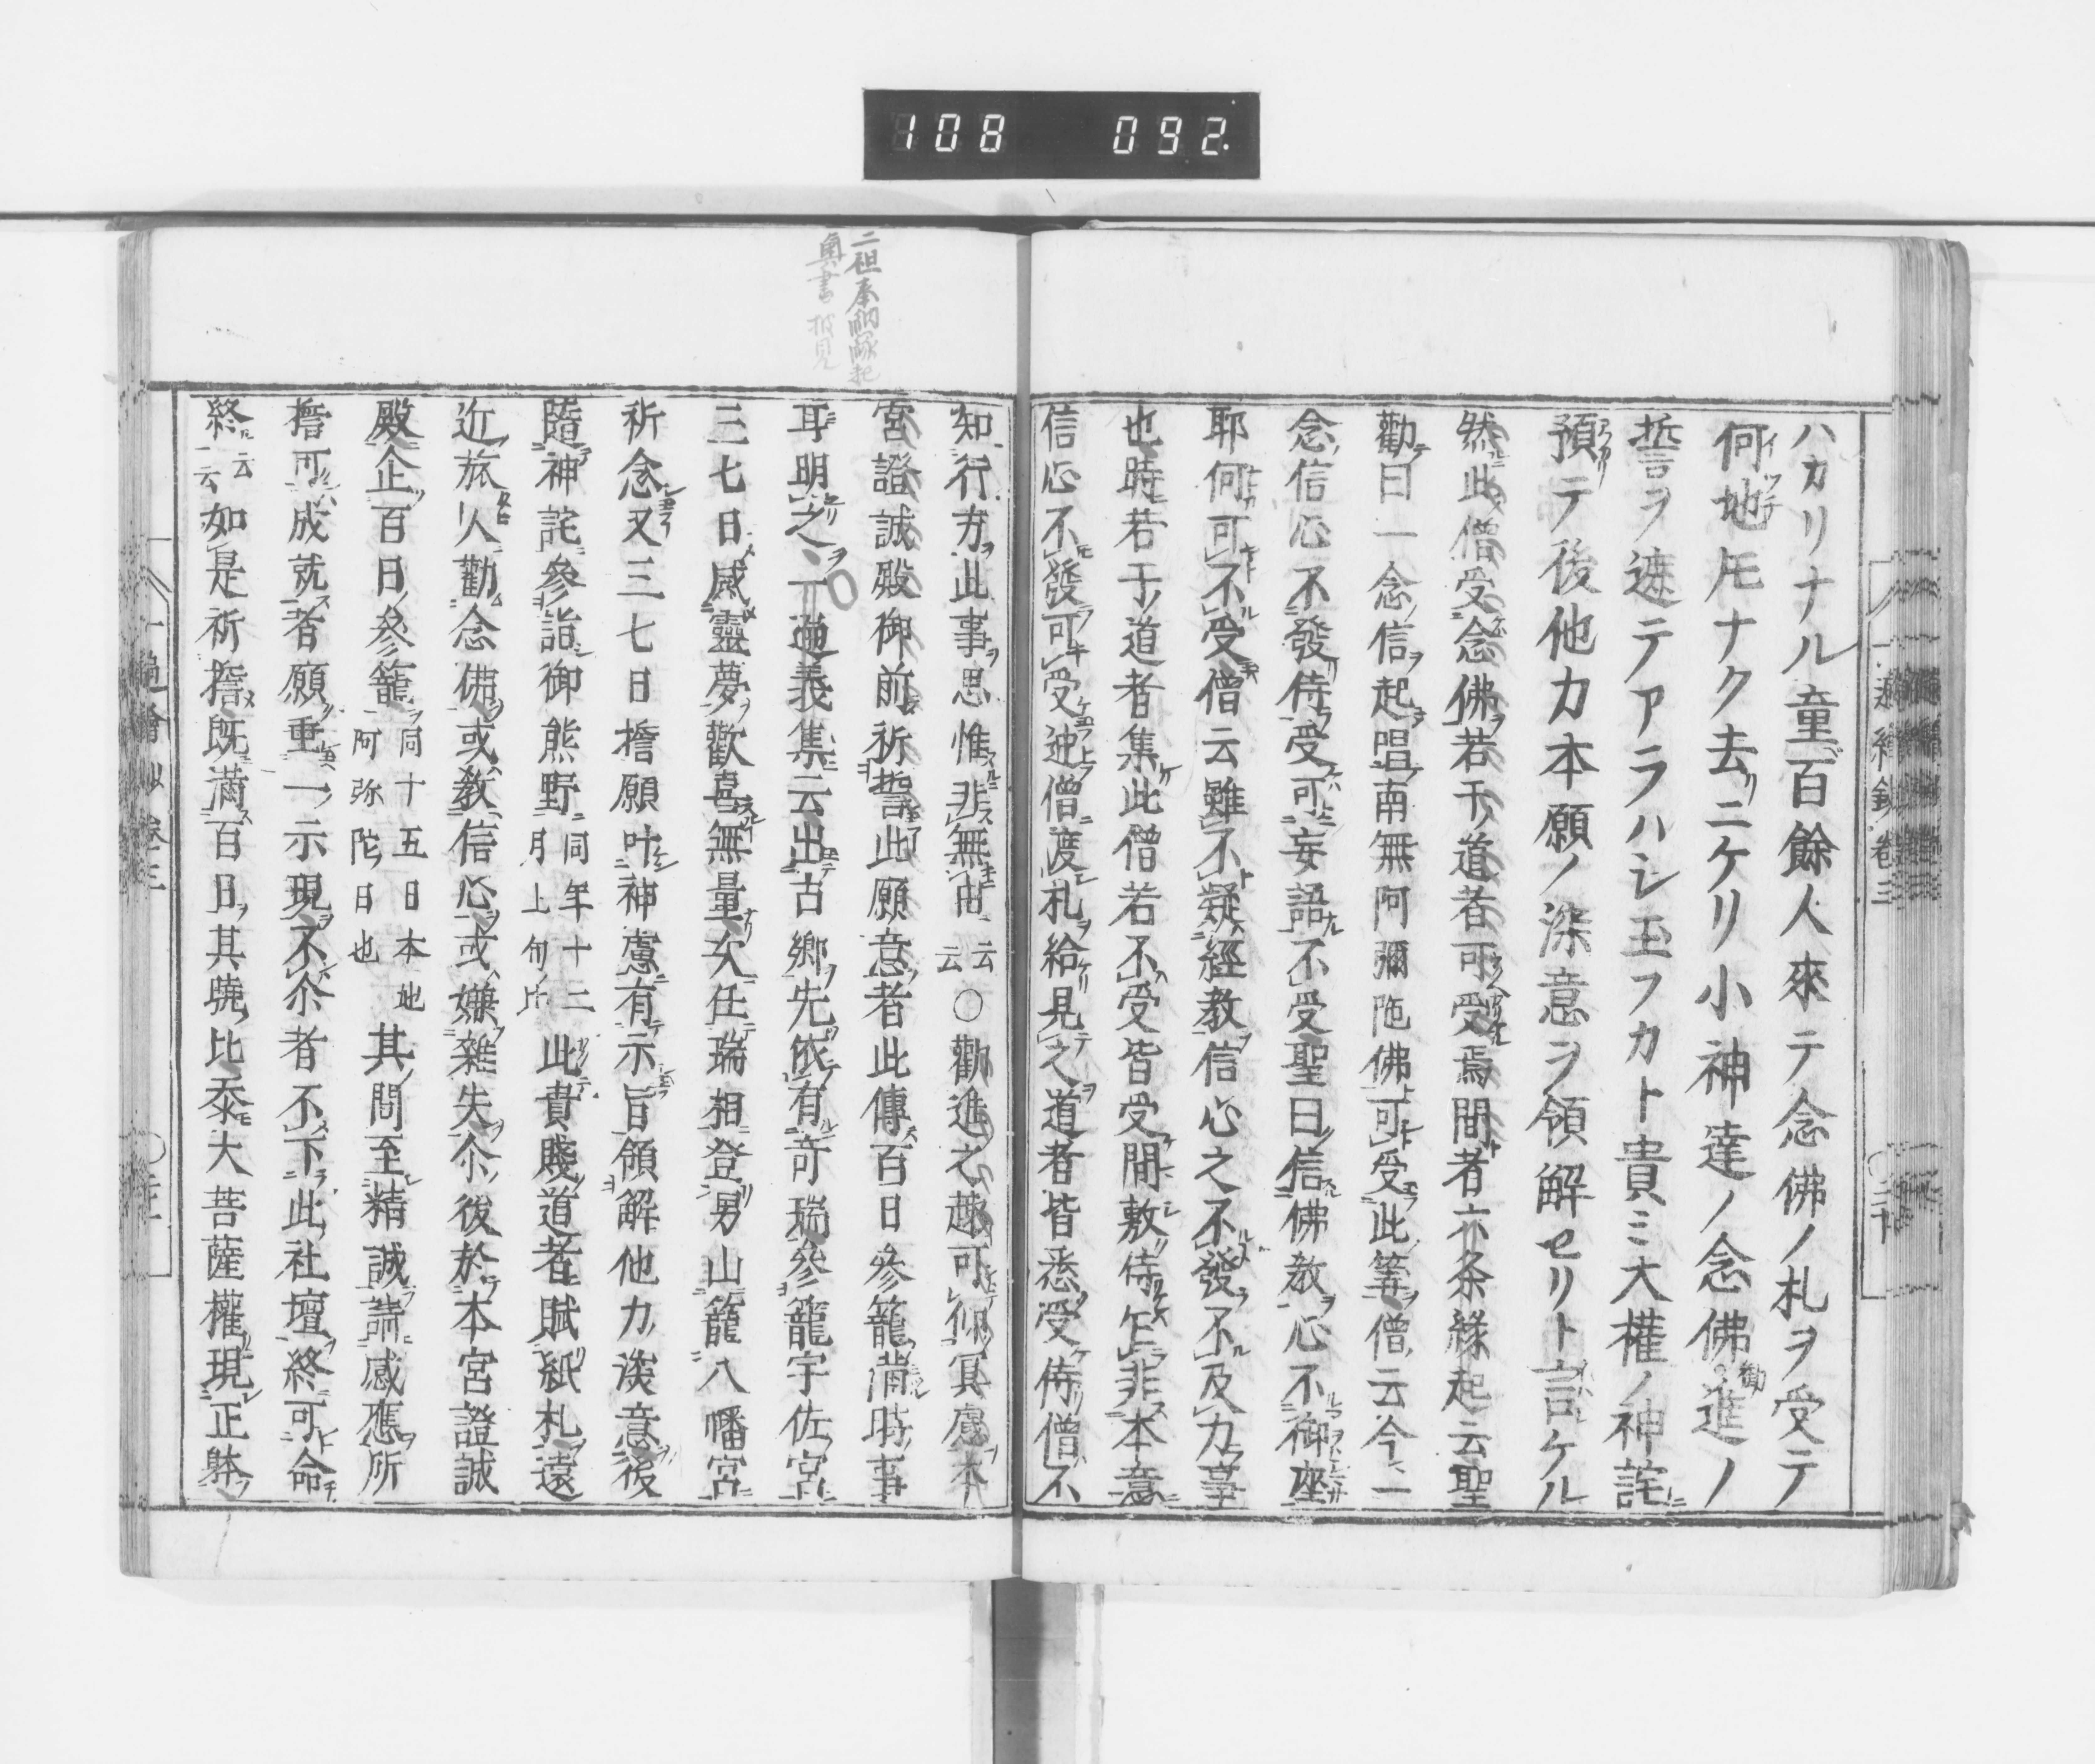 108 092
ハカリナル童百餘人來テ念佛ノ札ヲ受テ
何地モナク去ニケリ小神達ノ念佛勸進ノ
誓ヲ速テアラハシ玉フカト貴ミ大權ノ神詫
預テ後他力本願ノ深意ヲ領解セリト言ケル
然此僧受念佛若干道者可受焉間者六条縁起云聖
勸曰一念信起唱南無阿彌陁佛可受此等僧云今一
念信心不發侍受可妄語不受聖曰信佛教心不御座
耶何可不受僧云雖不疑經教信心之不發不及力事
也時若于道者集此僧若不受皆受間敷侍乍非本意
信心不發可受迚僧度札給見之道者皆悉受侍僧不
知行方此事思惟非無由云云○勸進之趣可仰冥慮本
宮證誠殿御前祈誓此願意者此傳百日參籠滿時事
耳明之一遍義集云出古郷先依有奇瑞參籠宇佐宮
三七日感靈夢歡喜無量次任瑞相登男山籠八幡宮
祈念又三七日擔願叶神慮有示旨領解他力深意後
隨神詫參詣御熊野同年十二月上旬比此貴賤道者賦紙札遠
近旅人勸念佛或教信心或嫌雜失尒後於本宮證誠
殿企百日參籠同十五日本地阿弥陀日也其間至精誠請感應所
擔可成就者願重一示現不尒者不下此社壇終可命
終云云如是祈擔既滿百日其曉比忝大菩薩權現正躰
二祖奉納縁起
奥書披見
一遍繪鈔卷三